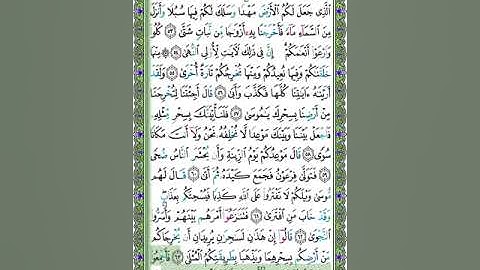 الَّذِي جَعَلَ لَكُمُ الْأَرْضَ مَهْدًا وَسَلَكَ لَكُمْ فِيهَا سُبُلًا وَأَنزَلَ
مِنَ السَّمَاءِ مَاءً فَأَخْرَجْنَا بِهِ أَزْوَاجًا مِّن نَّبَاتٍ شَتَّىٰ ٥٣ كُلُوا
وَارْعَوْا أَنْعَامَكُمْ إِنَّ فِي ذَٰلِكَ لَآيَاتٍ لِّأُولِي النُّهَىٰ ٥٤ مِنْهَا
خَلَقْنَاكُمْ وَفِيهَا نُعِيدُكُمْ وَمِنْهَا نُخْرِجُكُمْ تَارَةً أُخْرَىٰ ٥٥ وَلَقَدْ
أَرَيْنَاهُ آيَاتِنَا كُلَّهَا فَكَذَّبَ وَأَبَىٰ ٥٦ قَالَ أَجِئْتَنَا لِتُخْرِجَنَا
مِنْ أَرْضِنَا بِسِحْرِكَ يَا مُوسَىٰ ٥٧ فَلَنَأْتِيَنَّكَ بِسِحْرٍ مِّثْلِهِ
فَاجْعَلْ بَيْنَنَا وَبَيْنَكَ مَوْعِدًا لَّا نُخْلِفُهُ نَحْنُ وَلَا أَنتَ مَكَانًا
سُوًى ٥٨ قَالَ مَوْعِدُكُمْ يَوْمُ الزِّينَةِ وَأَن يُحْشَرَ النَّاسُ ضُحًى
٥٩ فَتَوَلَّىٰ فِرْعَوْنُ فَجَمَعَ كَيْدَهُ ثُمَّ أَتَىٰ ٦٠ قَالَ لَهُم
مُّوسَىٰ وَيْلَكُمْ لَا تَفْتَرُوا عَلَى اللَّهِ كَذِبًا فَيُسْحِتَكُم بِعَذَابٍ
وَقَدْ خَابَ مَنِ افْتَرَىٰ ٦١ فَتَنَازَعُوا أَمْرَهُم بَيْنَهُمْ وَأَسَرُّوا
النَّجْوَىٰ ٦٢ قَالُوا إِنْ هَٰذَانِ لَسَاحِرَانِ يُرِيدَانِ أَن يُخْرِجَاكُم
مِّنْ أَرْضِكُم بِسِحْرِهِمَا وَيَذْهَبَا بِطَرِيقَتِكُمُ الْمُثْلَىٰ ٦٣ فَأَجْمِعُوا